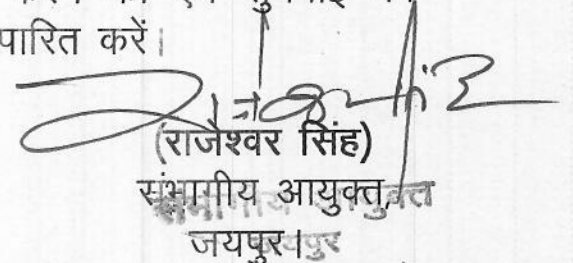 पारित करें।
(राजेश्वर सिंह)
संभागीय आयुक्त,
जयपुर।